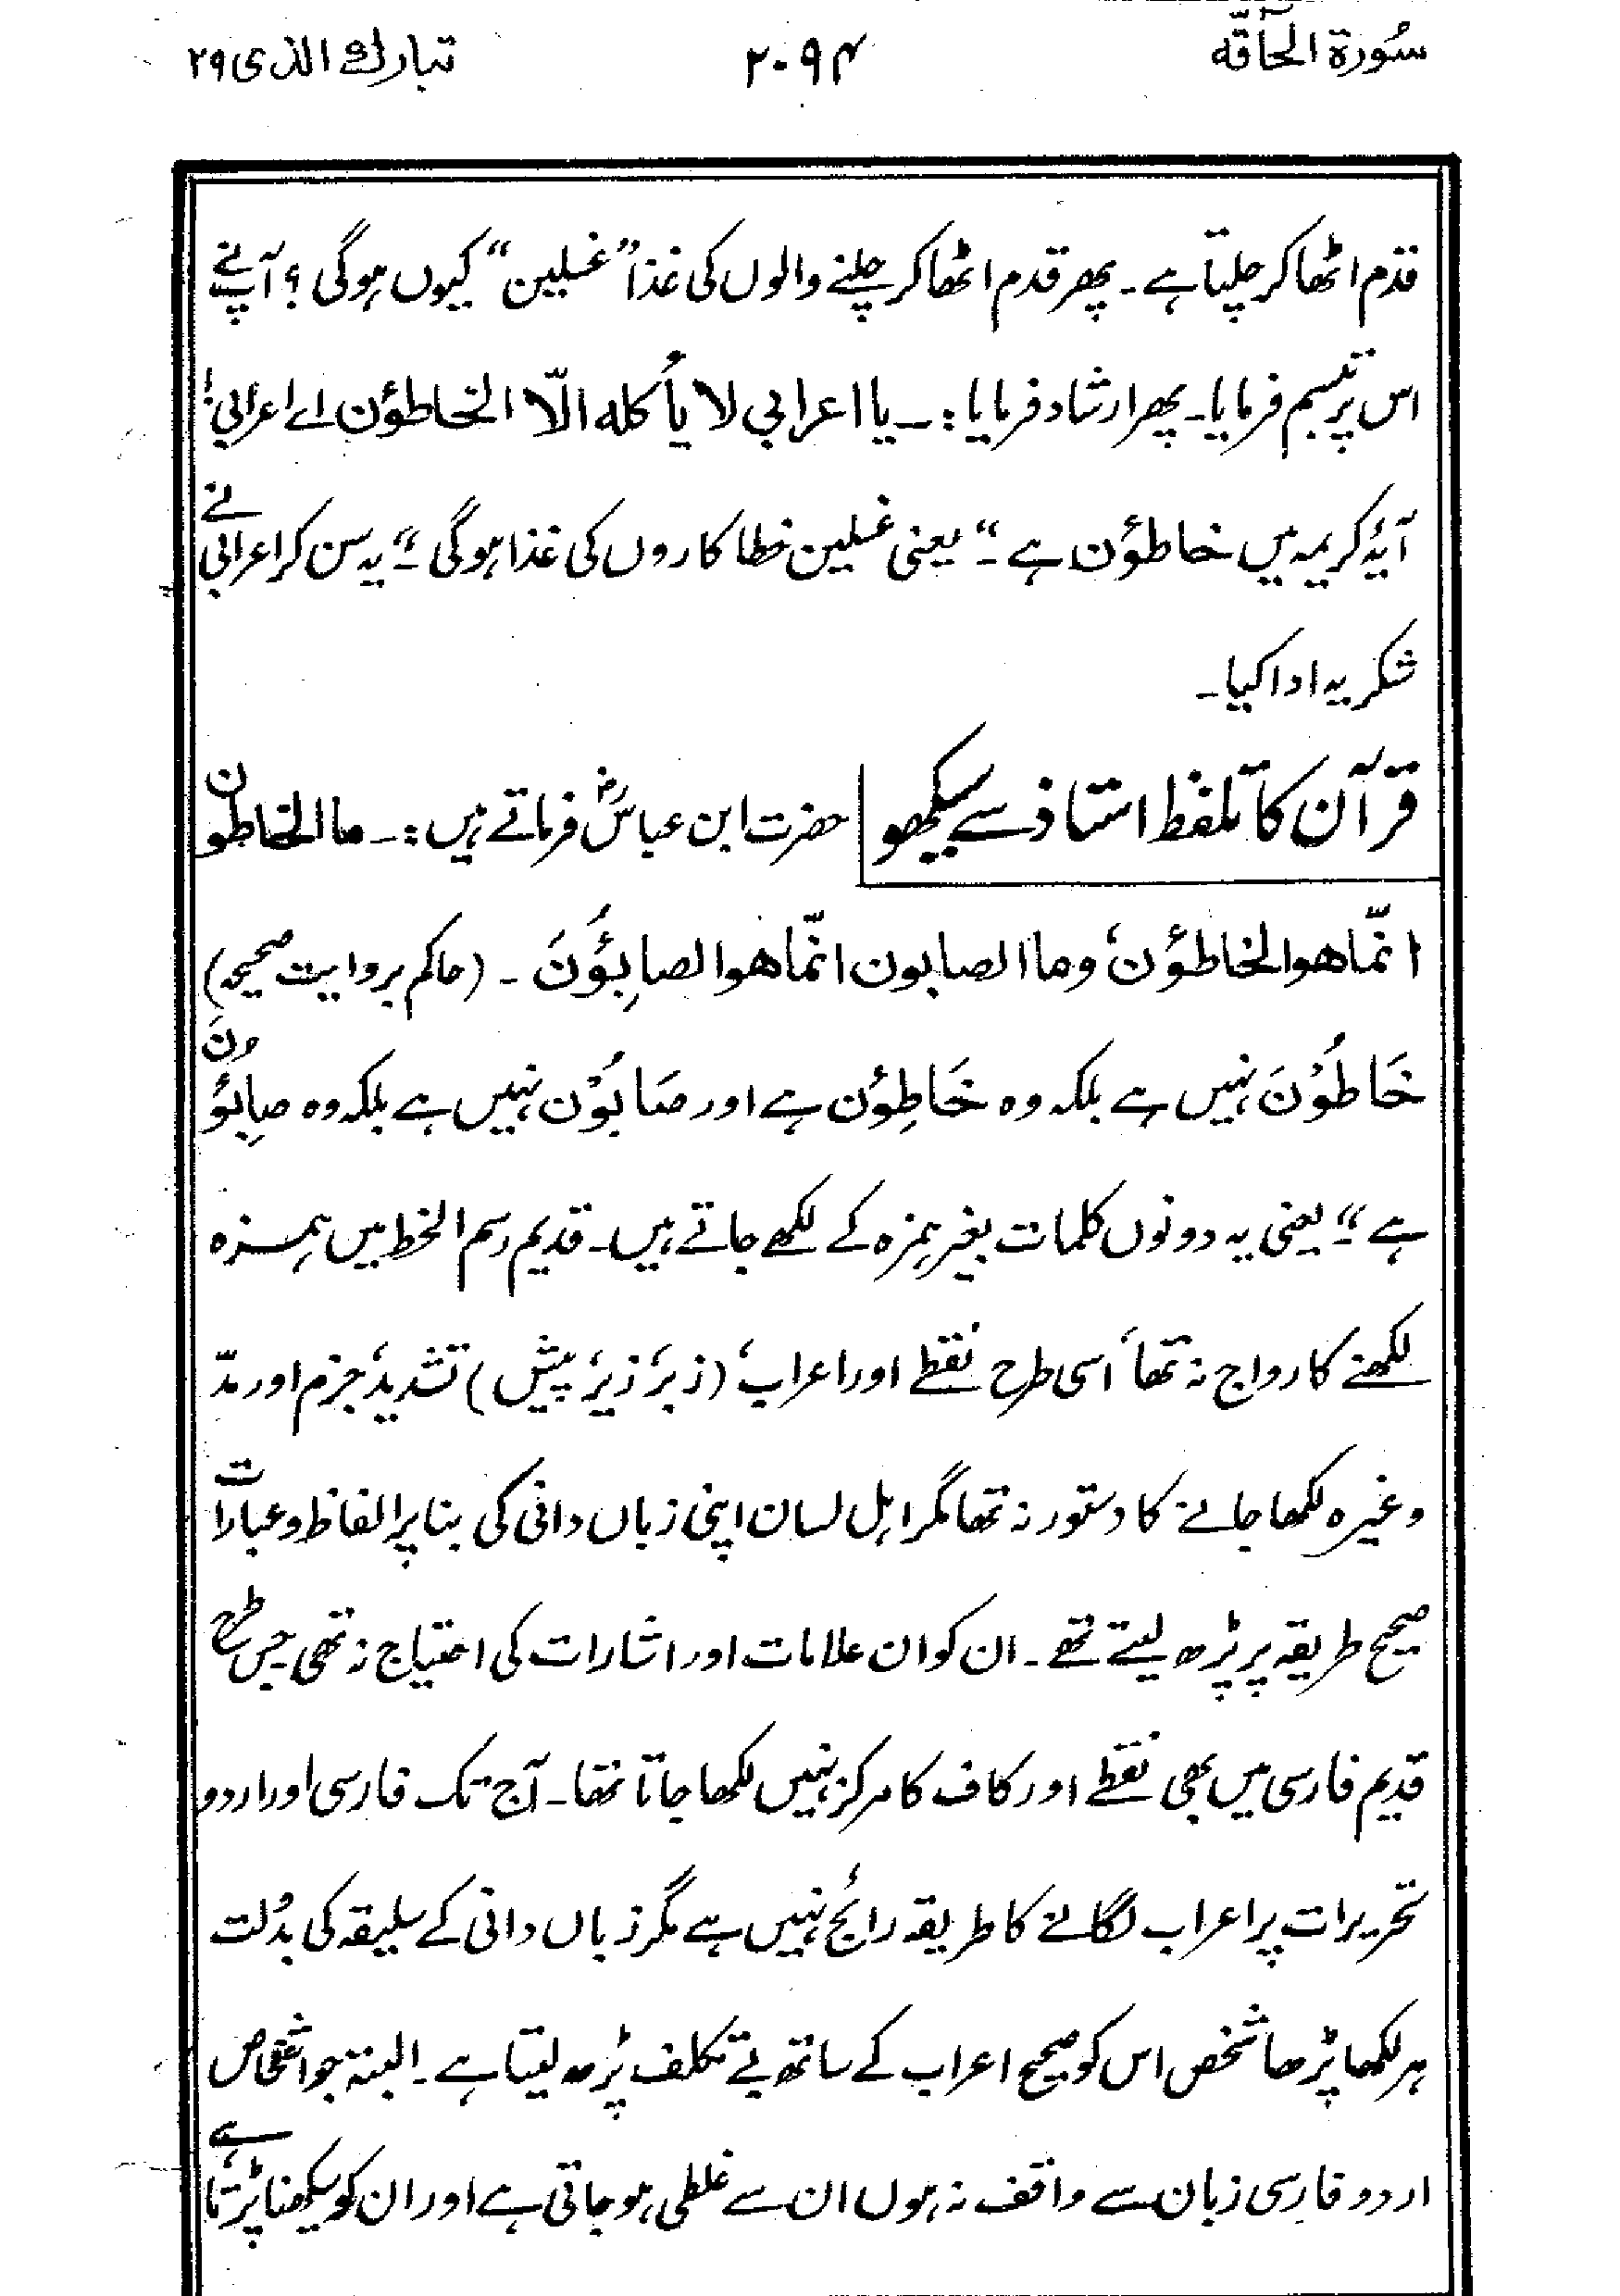 سُورۃ الحآقّہ ۲۰۹۴ تبارك الذی ۲۹
قدم اٹھا کر چلتا ہے۔ پھر قدم اٹھا کر چلنے والوں کی غذا ”غسلین“ کیوں ہوگی؟ آپ نے
اس پر تبسم فرمایا۔ پھر ارشاد فرمایا:۔ یا اعرابی لا یأکله الّا الخاطؤن اے اعرابی!
آیۂ کریمہ میں خاطؤن ہے۔“ یعنی غسلین خطا کاروں کی غذا ہوگی۔“ یہ سن کر اعرابی نے
شکریہ ادا کیا۔
قرآن کا تلفظ استاذ سے سیکھو حضرت ابن عباسؓ فرماتے ہیں:۔ ما الخاطون
انّما هو الخاطؤن، وما الصابون انّما هو الصابِؤُنَ۔ (حاکم بروایت صحیحہ)
خَاطُوْنَ نہیں ہے بلکہ وہ خَاطِؤن ہے اور صَابُوْن نہیں ہے بلکہ وہ صابِئُوْنَ
ہے“۔ یعنی یہ دونوں کلمات بغیر ہمزہ کے لکھے جاتے ہیں۔ قدیم رسم الخط میں ہمزہ
لکھنے کا رواج نہ تھا، اسی طرح نقطے اور اعراب، (زبر، زیر، پیش) تشدید، جزم اور مدّ
وغیرہ لکھا جانے کا دستور نہ تھا مگر اہل لسان اپنی زباں دانی کی بنا پر الفاظ و عبارات
صحیح طریقہ پر پڑھ لیتے تھے۔ ان کو ان علامات اور اشارات کی احتیاج نہ تھی جس طرح
قدیم فارسی میں بھی نقطے اور کاف کا مرکز نہیں لکھا جاتا تھا۔ آج تک فارسی اور اردو
تحریرات پر اعراب لگانے کا طریقہ رائج نہیں ہے مگر زباں دانی کے سلیقہ کی بدولت
ہر لکھا پڑھا شخص اس کو صحیح اعراب کے ساتھ بے تکلف پڑھ لیتا ہے۔ البتہ جو اشخاص
اردو فارسی زبان سے واقف نہ ہوں ان سے غلطی ہو جاتی ہے اور ان کو سیکھنا پڑتا ہے